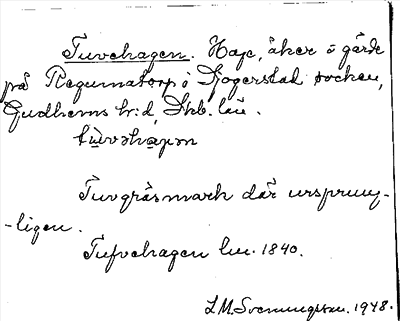 Tuvehagen. Hage, åker o gärde
på Regumatorp i Djogerstad socken,
Gudhems h:d, Skb. län.
tùvəhagən
Tuvgräsmark där ursprung-
-ligen.
Tufvehagen lm. 1840.
L.M. Svenungsson. 1948.